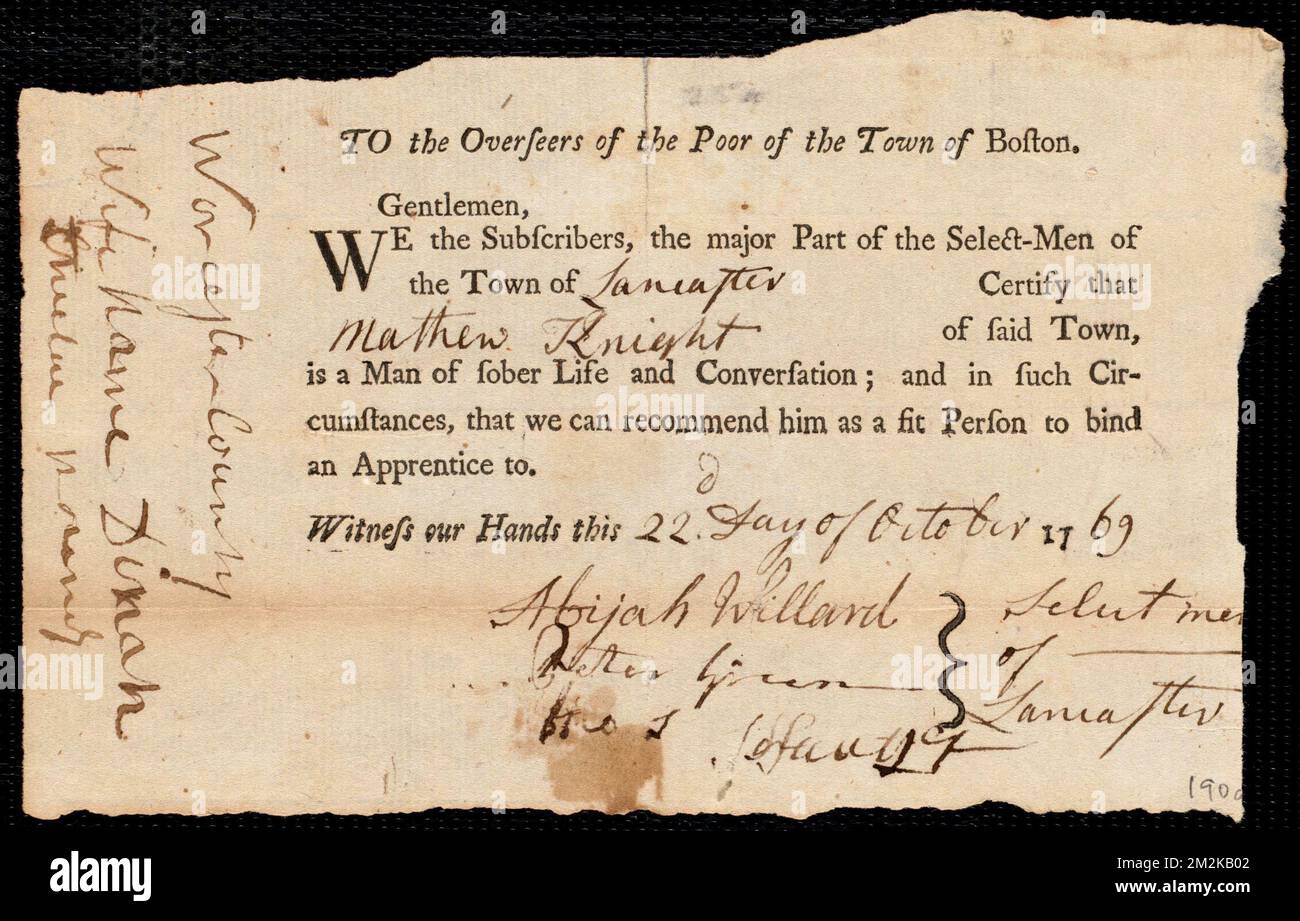 TO the Overſeers of the Poor of the Town of Boſton.
Gentlemen,
WE the Subſcribers, the major Part of the Select-Men of
the Town of Lancaſter Certify that
Mathew Knight of ſaid Town,
is a Man of ſober Life and Converſation; and in ſuch Cir-
cumſtances, that we can recommend him as a fit Perſon to bind
an Apprentice to.
Witneſs our Hands this 22d Day of October 1769
Abijah Willard
Peter Green
Select men
of
Lancaſter
Worceſter County
Wife name Dinah
190
a alamy
alamy
Image ID: 2M2KB02
www.alamy.com